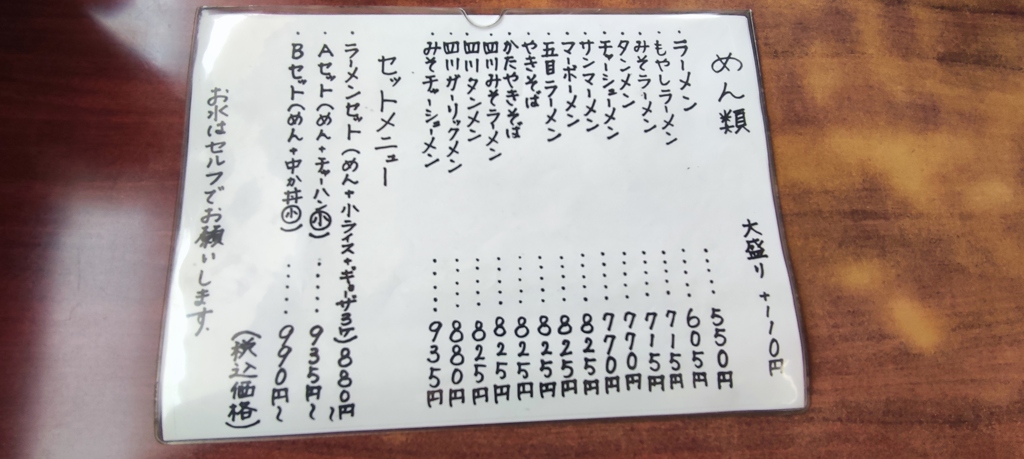 めん類　大盛り　+110円
・ラーメン・・・・・550円
・もやしラーメン・・・・・605円
・みそラーメン・・・・・715円
・タンメン・・・・・715円
・チャーシューメン・・・・・770円
・サンマーメン・・・・・770円
・マーボーメン・・・・・825円
・五目ラーメン・・・・・825円
・やきそば・・・・・825円
・かたやきそば・・・・・825円
・四川みそラーメン・・・・・825円
・四川タンメン・・・・・825円
・四川ガーリックメン・・・・・880円
・みそチャーシューメン・・・・・935円
セットメニュー
・ラーメンセット(めん+小ライス+ギョーザ3ケ)880円〜
・Aセット(めん+チャーハン㊙小)・・・・・935円〜
・Bセット(めん+中か丼小)・・・・・990円〜
(税込価格)
お水はセルフでお願いします。